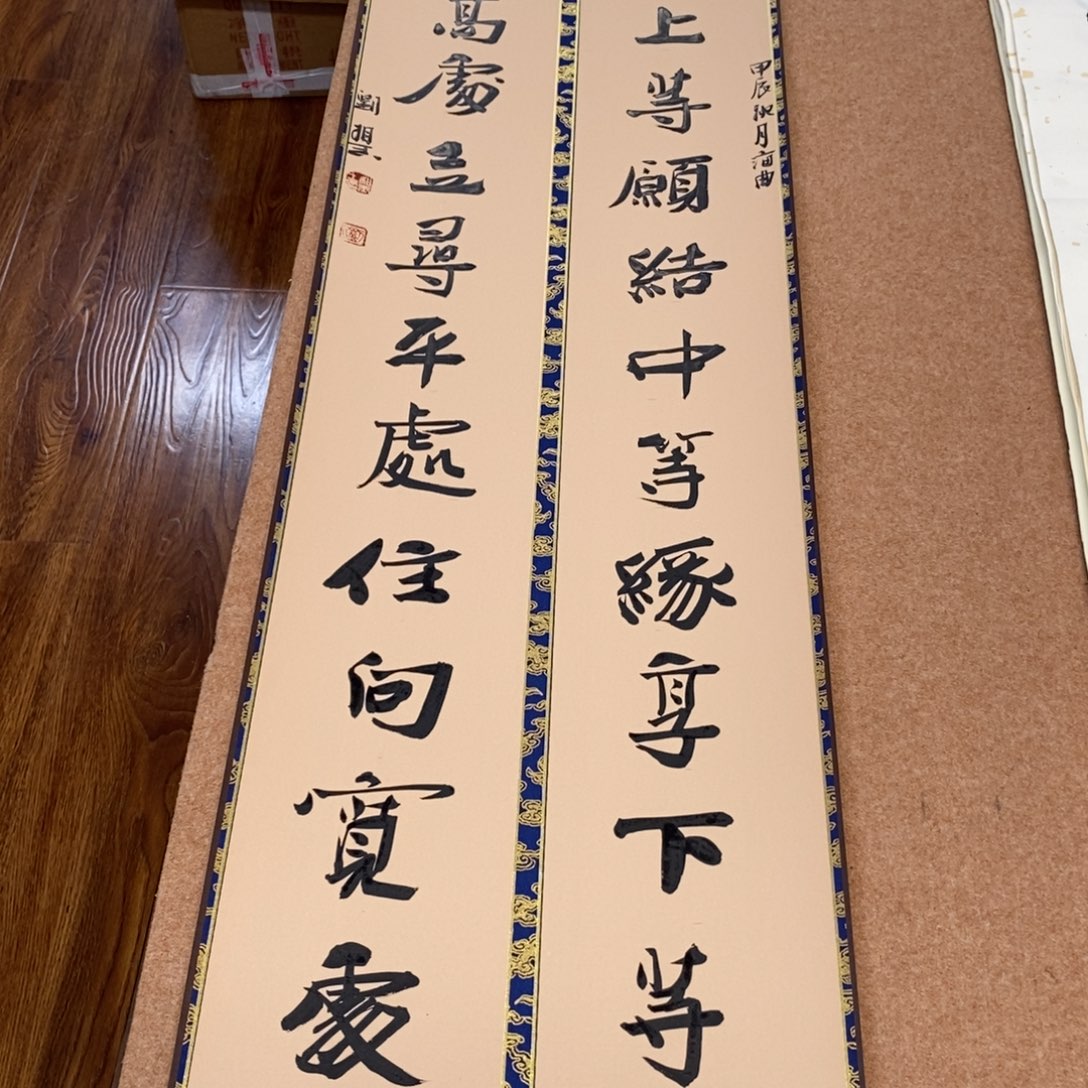 甲辰秋月海曲
上等願結中等緣享下等
高處立尋平處住向寬處
劉